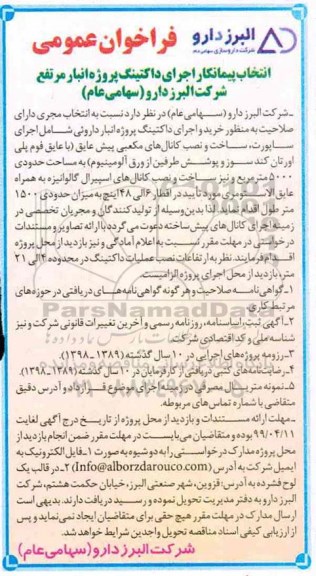 البرز دارو
شرکت داروسازی سهامی عام
فراخوان عمومی
انتخاب پیمانکار اجرای داکتینگ پروژه انبار مرتفع
شرکت البرز دارو (سهامی عام)
ـ شرکت البرز دارو (سهامی عام) در نظر دارد نسبت به انتخاب مجری دارای
صلاحیت به منظور خرید و اجرای داکتینگ پروژه انبار داروئی شامل اجرای
ساپورت، ساخت و نصب کانال‌های مکعبی پیش عایق (با عایق فوم پلی
اورتان کند سوز و پوشش طرفین از ورق آلومینیوم) به مساحت حدودی
۵۰۰۰ مترمربع و نیز ساخت و نصب کانال‌های اسپیرال گالوانیزه به همراه
عایق الاستومری مورد تأیید در اقطار ۶ الی ۴۸ اینچ به میزان حدودی ۱۵۰۰
متر طول اقدام نماید. لذا بدین‌وسیله از تولیدکنندگان و مجریان تخصصی در
زمینه اجرای کانال‌های پیش ساخته دعوت می گردد با ارائه تصاویر و مستندات
درخواستی در مهلت مقرر نسبت به اعلام آمادگی و نیز بازدید از محل پروژه
اقدام فرمایند. نظر به ارتفاعات نصب عملیات داکتینگ در محدوده ۴ الی ۲۱
متر، بازدید از محل اجرای پروژه الزامیست.
۱ـ گواهی‌نامه صلاحیت و هر گونه گواهی نامه‌های دریافتی در حوزه‌های
مرتبط کاری.
۲ـ آگهی ثبت، اساسنامه، روزنامه رسمی و آخرین تغییرات قانونی شرکت و نیز
شناسه ملی و کد اقتصادی شرکت.
۳ـ رزومه پروژه‌های اجرایی در ۱۰ سال گذشته (۱۳۸۹ـ۱۳۹۸).
۴ـ رضایت‌نامه‌های کتبی دریافتی از کارفرمایان در ۱۰ سال گذشته (۱۳۸۹ـ۱۳۹۸).
۵ـ نمونه متریال مصرفی در زمینه اجرای موضوع قرارداد و آدرس دقیق
متقاضی با شماره تماس‌های مربوطه.
ـ مهلت ارائه مستندات و بازدید از محل پروژه از تاریخ درج آگهی لغایت
۹۹/۰۴/۱۱ بوده و متقاضیان می‌بایست در مهلت مقرر ضمن انجام بازدید از
محل پروژه مدارک درخواستی را به دو شیوه به صورت ۱ـ فایل الکترونیک به
ایمیل شرکت به آدرس (Info@alborzdarouco.com) ۲ـ در قالب یک
لوح فشرده به آدرس: قزوین، شهر صنعتی البرز، خیابان حکمت هشتم، شرکت
البرز دارو به دفتر مدیریت تحویل نموده و رسید دریافت دارند. بدیهی است
ارسال مدارک در مهلت مقرر هیچ حقی برای متقاضیان ایجاد نمی‌نماید و پس
از ارزیابی کیفی اسناد مناقصه تحویل واجدین شرایط خواهد شد.
شرکت البرز دارو (سهامی عام)
ParsNamadData